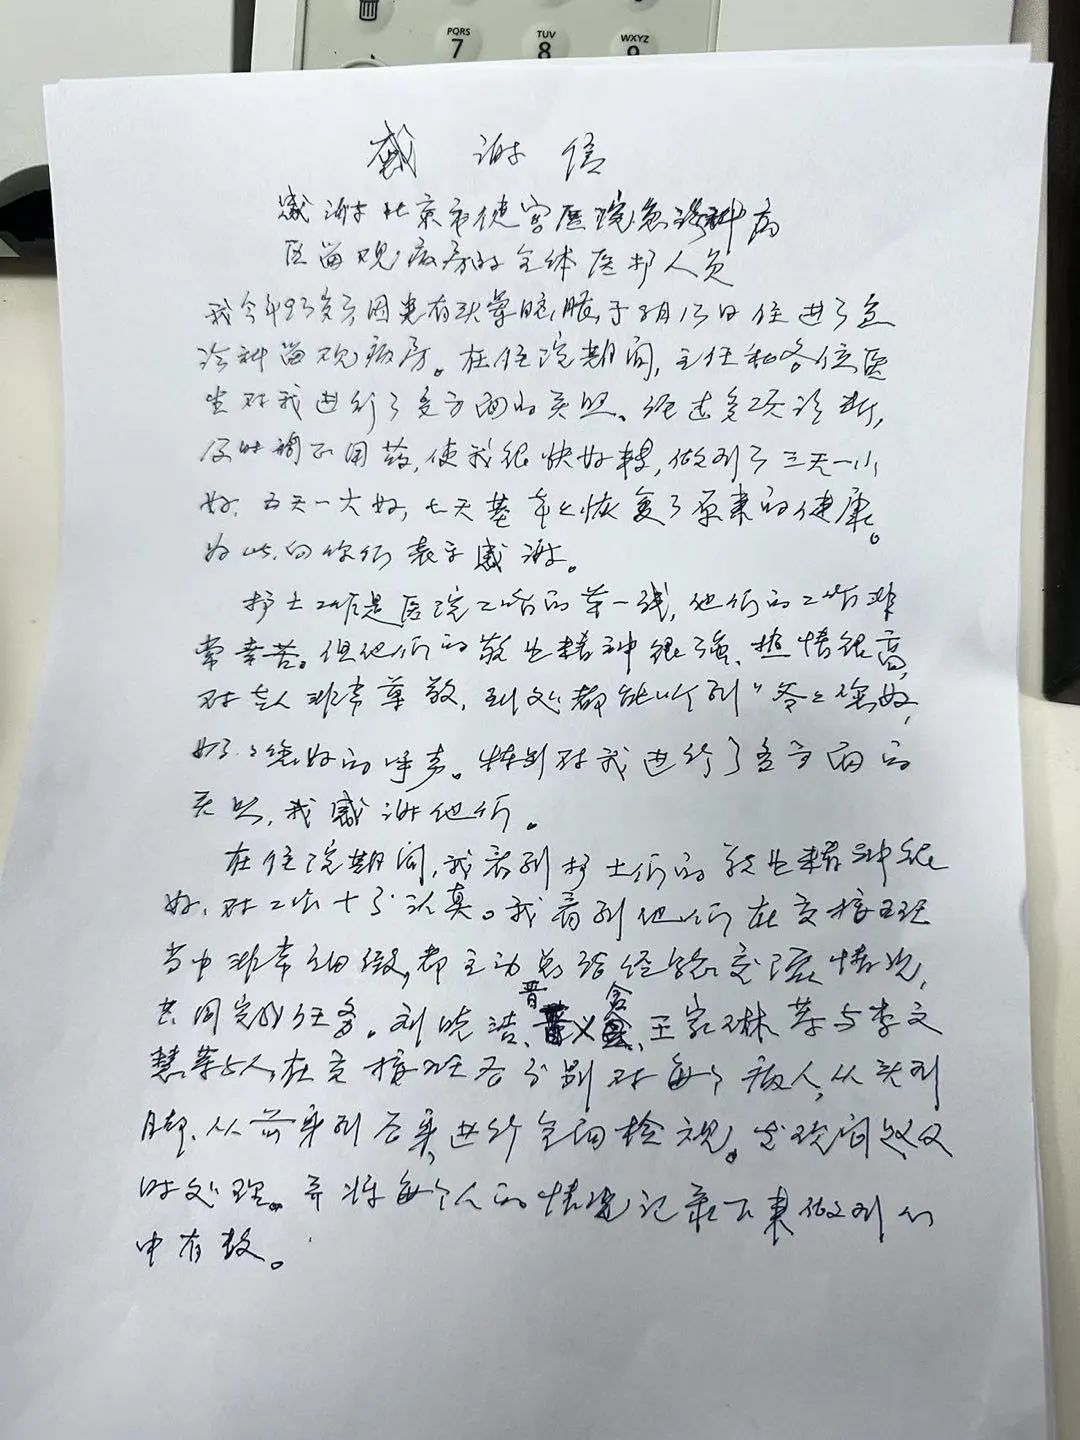 PQRS TUV WXYZ
7 8 9
感谢信
感谢北京市健宫医院急诊科病
区留观病房的全体医护人员
我今年93岁了因患有头晕脑胀,于8月13日住进了急
诊科留观病房。在住院期间,主任和各位医
生对我进行了多方面的关照、经过多项诊断,
及时调正用药,使我很快好转,做到了三天一小
好,五天一大好,七天基本上恢复了原来的健康。
为此,向你们表示感谢。
护士工作是医院工作的第一线,他们的工作非
常辛苦。但他们的敬业精神很强、热情很高,
对老人非常尊敬,到处都能听到"爷爷您好,
好,您好的呼声。特别对我进行了多方面的
关照,我感谢他们。
在住院期间,我看到护士们的敬业精神很
好,对工作十分认真。我看到他们在交接班
当中非常细微,都主动总结经验交流情况,
共同完成任务。刘晓浩、晋义含、王家琳等与李文
慧等5人,在交接班后分别对每个病人,从头到
脚、从前身到后身进行全面检视。发现问题及
时处理。并将每个人的情况记录下来做到心
中有数。